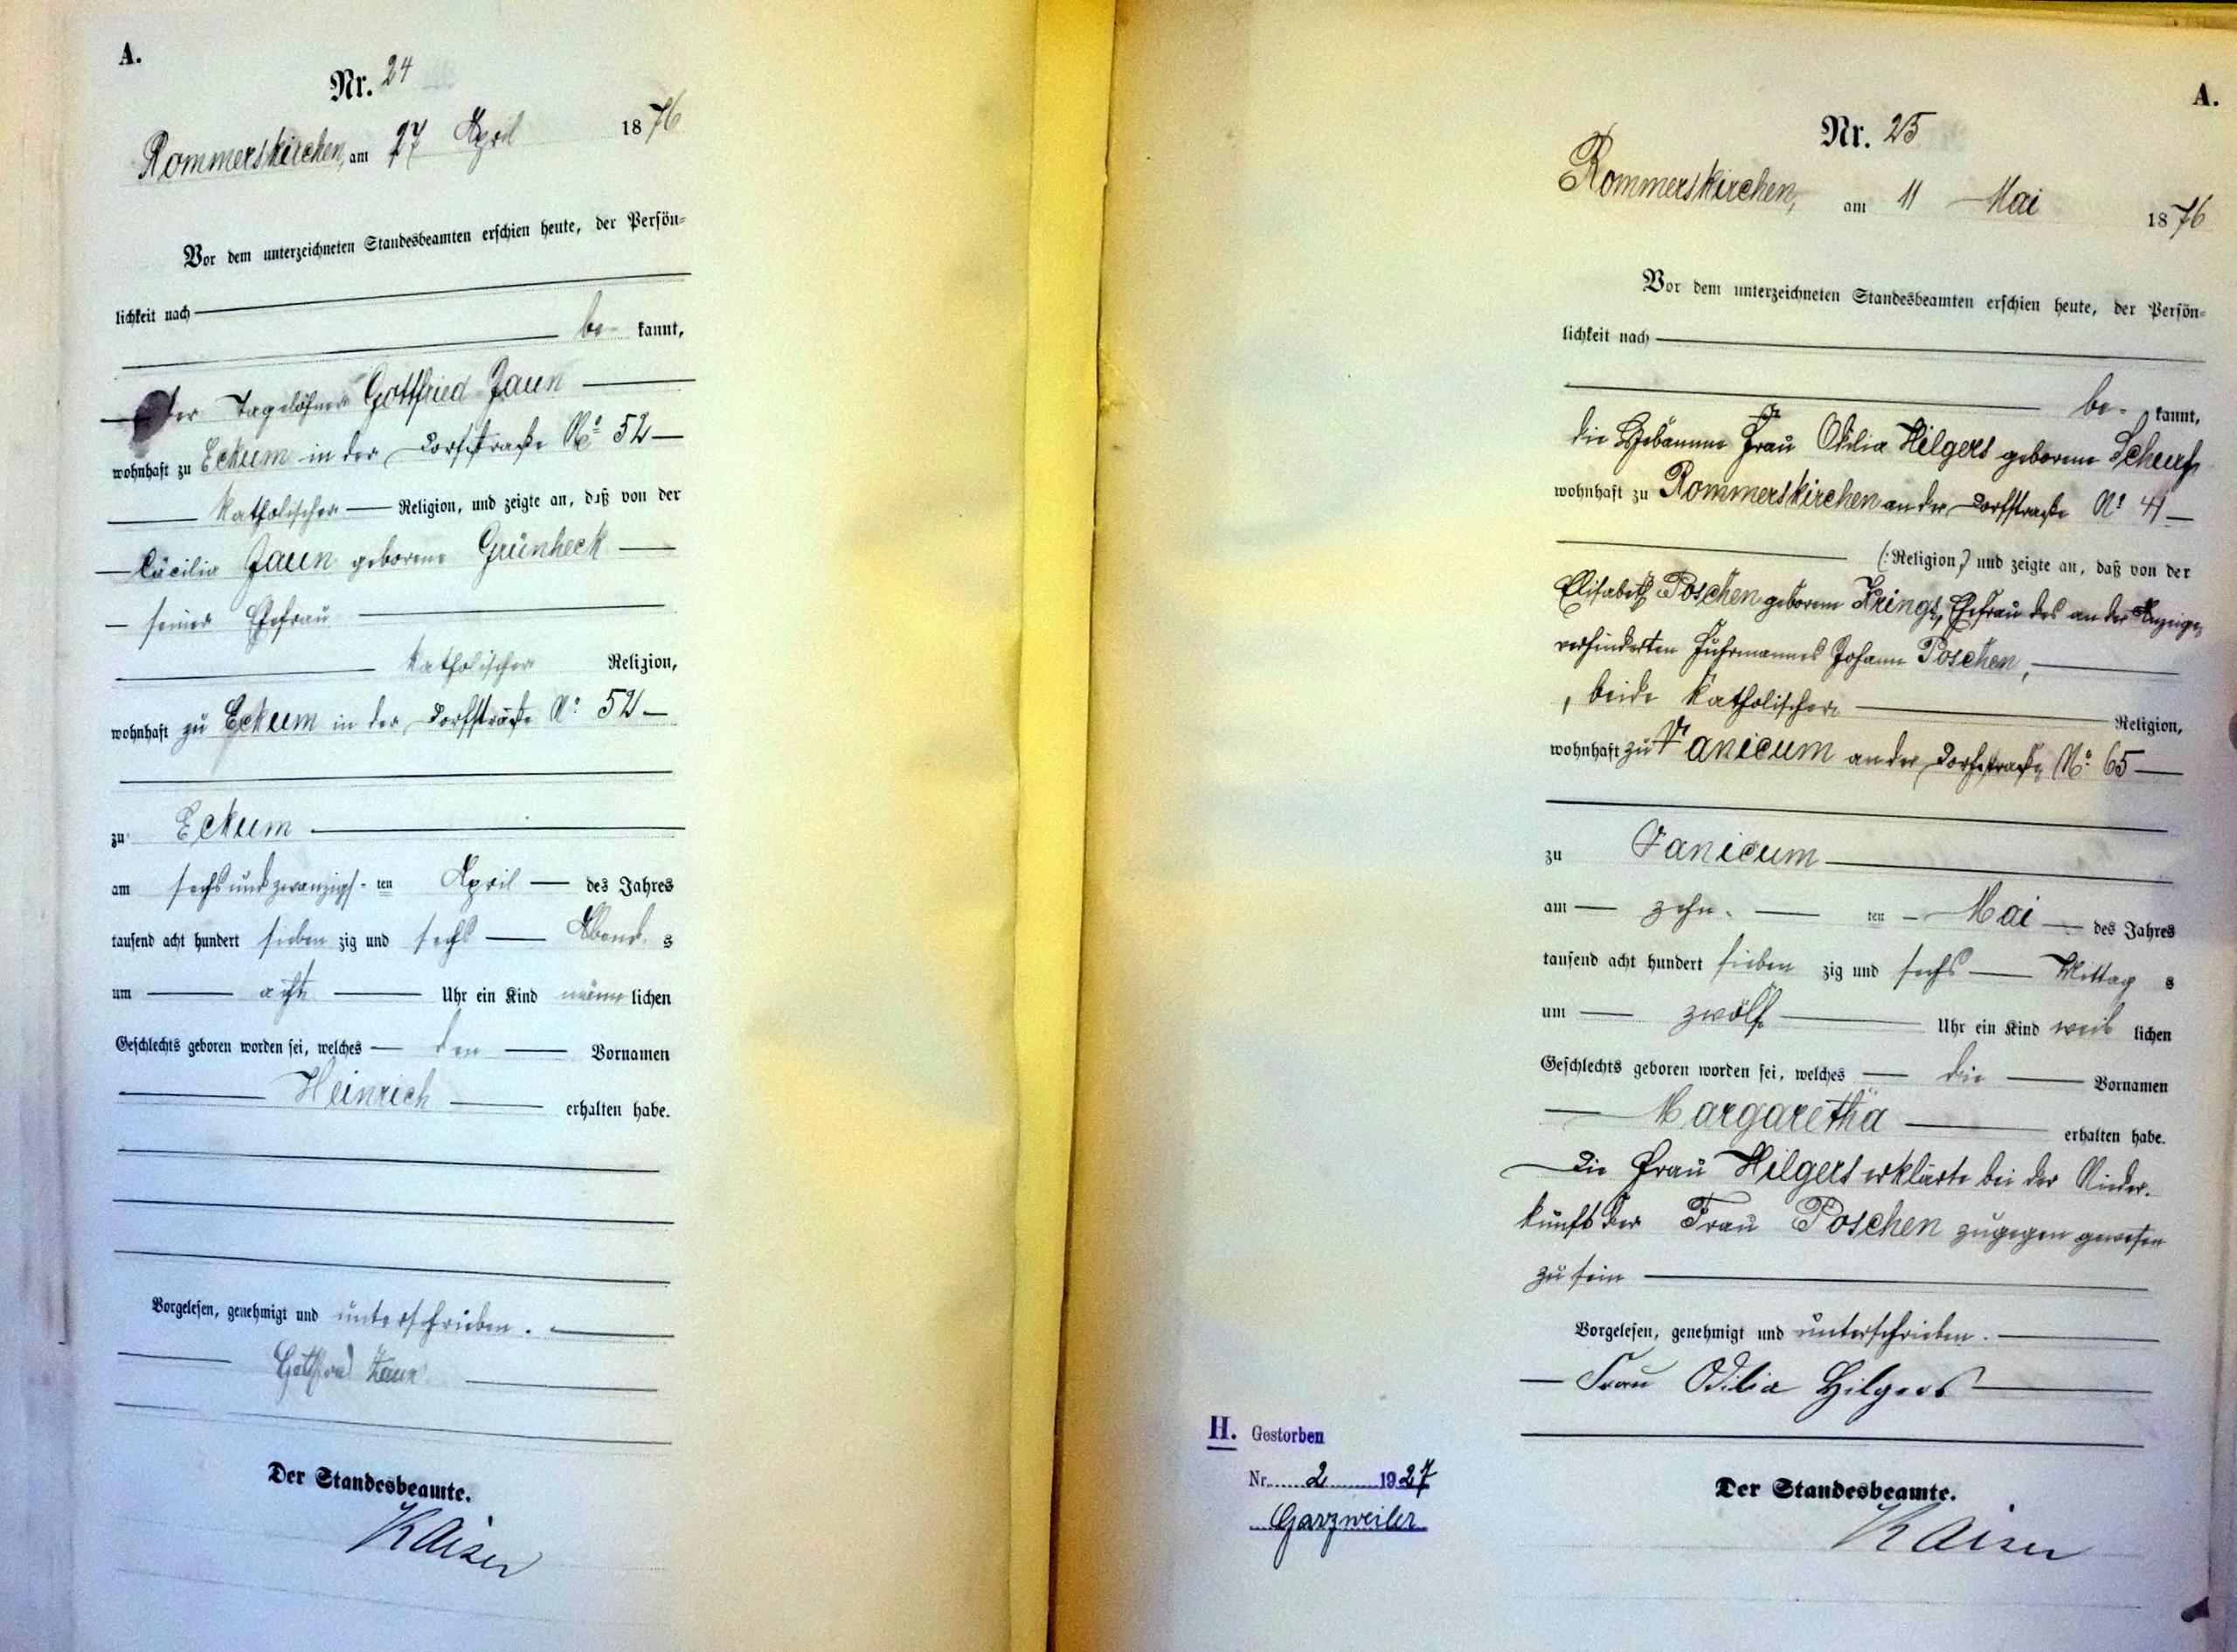 A.
Nr. 24
Rommerskirchen, am 27 April 1876
Vor dem unterzeichneten Standesbeamten erschien heute, der Persön=
lichkeit nach
be- kannt,
der Tagelöhner Gottfried Zaun
wohnhaft zu Eckum in der Dorfstraße No. 52
katholischer Religion, und zeigte an, daß von der
Cäcilia Zaun geborene Grünheck
seiner Ehefrau
katholischer Religion,
wohnhaft zu Eckum in der Dorfstraße No. 52
zu Eckum
am sechsundzwanzigs-ten April des Jahres
tausend acht hundert sieben zig und sechs Abend s
um acht Uhr ein Kind männ lichen
Geschlechts geboren worden sei, welches den Vornamen
Heinrich erhalten habe.
Vorgelesen, genehmigt und unterschrieben.
Gottfried Zaun
Der Standesbeamte.
Kaiser
A.
Nr. 25
Rommerskirchen, am 11 Mai 1876
Vor dem unterzeichneten Standesbeamten erschien heute, der Persön=
lichkeit nach
be- kannt,
die Hebamme Frau Odilia Hilgers geborene
wohnhaft zu Rommerskirchen an der Dorfstraße No. 41
(:Religion,) und zeigte an, daß von der
Elisabeth Poschen geborene Krings, Ehefrau des an der Anzeige
verhinderten Fuhrmannes Johann Poschen,
, beide katholischer Religion,
wohnhaft zu Vanicum an der Dorfstraße No. 65
zu Vanicum
am zehn- ten Mai des Jahres
tausend acht hundert sieben zig und sechs Mittag s
um zwölf Uhr ein Kind weib lichen
Geschlechts geboren worden sei, welches die Vornamen
Margaretha erhalten habe.
Die Frau Hilgers erklärte bei der Nieder-
kunft der Frau Poschen zugegen gewesen
zu sein
Vorgelesen, genehmigt und unterschrieben.
Frau Odilia Hilgers
H. Gestorben
Nr. 2 1927
Garzweiler
Der Standesbeamte.
Kaiser